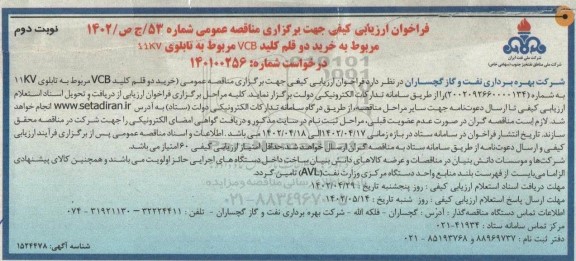 نوبت دوم
فراخوان ارزیابی کیفی جهت برگزاری مناقصه عمومی شماره ۵۳/ج ص/۱۴۰۲
مربوط به خرید دو قلم کلید VCB مربوط به تابلوی ۱۱KV
درخواست شماره: ۱۴۰۱۰۰۲۵۶
شرکت ملی نفت ایران
شرکت ملی مناطق نفتخیز جنوب (سهامی خاص)
شرکت بهره برداری نفت و گاز گچساران در نظر دارد فراخوان ارزیابی کیفی جهت برگزاری مناقصه عمومی (خرید دو قلم کلید VCB مربوط به تابلوی ۱۱KV
به شماره (۲۰۰۲۰۹۳۶۶۰۰۰۰۱۳۴) را از طریق سامانه تدارکات الکترونیکی دولت برگزار نماید. کلیه مراحل برگزاری فراخوان ارزیابی از دریافت و تحویل اسناد استعلام
ارزیابی کیفی تا ارسال دعوت نامه جهت سایر مراحل مناقصه، از طریق درگاه سامانه تدارکات الکترونیکی دولت (ستاد) به آدرس www.setadiran.ir انجام خواهد
شد. لازم است مناقصه گران در صورت عدم عضویت قبلی، مراحل ثبت نام در سایت مذکور و دریافت گواهی امضای الکترونیکی را جهت شرکت در مناقصه محقق
سازند. تاریخ انتشار فراخوان در سامانه ستاد در بازه زمانی ۱۴۰۲/۰۴/۱۷ الی ۱۴۰۲/۰۴/۱۸ می باشد. اطلاعات و اسناد مناقصه عمومی پس از برگزاری فرآیند ارزیابی
کیفی و ارسال دعوت نامه از طریق سامانه ستاد به مناقصه گران ارسال خواهد شد. حداقل امتیاز ارزیابی کیفی ۶۰ امتیاز می باشد.
شرکت ها و موسسات دانش بنیان در مناقصات و عرضه کالاهای دانش بنیان ساخت داخل دستگاه های اجرایی حائز اولویت می باشند و همچنین کالای پیشنهادی
الزاما می بایست از فهرست بلند منابع واحد دستگاه مرکزی وزارت نفت (AVL) تامین گردد.
مهلت دریافت اسناد استعلام ارزیابی کیفی: روز پنجشنبه تاریخ ۱۴۰۲/۰۴/۲۹
مهلت ارسال پاسخ استعلام ارزیابی کیفی: روز شنبه تاریخ: ۱۴۰۲/۰۵/۱۴
اطلاعات تماس دستگاه مناقصه گذار: آدرس: گچساران - فلکه الله - شرکت بهره برداری نفت و گاز گچساران - تلفن: ۳۲۲۲۴۴۱۱ - ۳۱۹۲۱۱۳۰ - ۰۷۴
مرکز تماس سامانه ستاد: ۴۱۹۳۴-۰۲۱
دفتر ثبت نام: ۸۸۹۶۹۷۳۷ و ۸۵۱۹۳۷۶۸ - ۰۲۱
شناسه آگهی: ۱۵۲۴۴۷۸